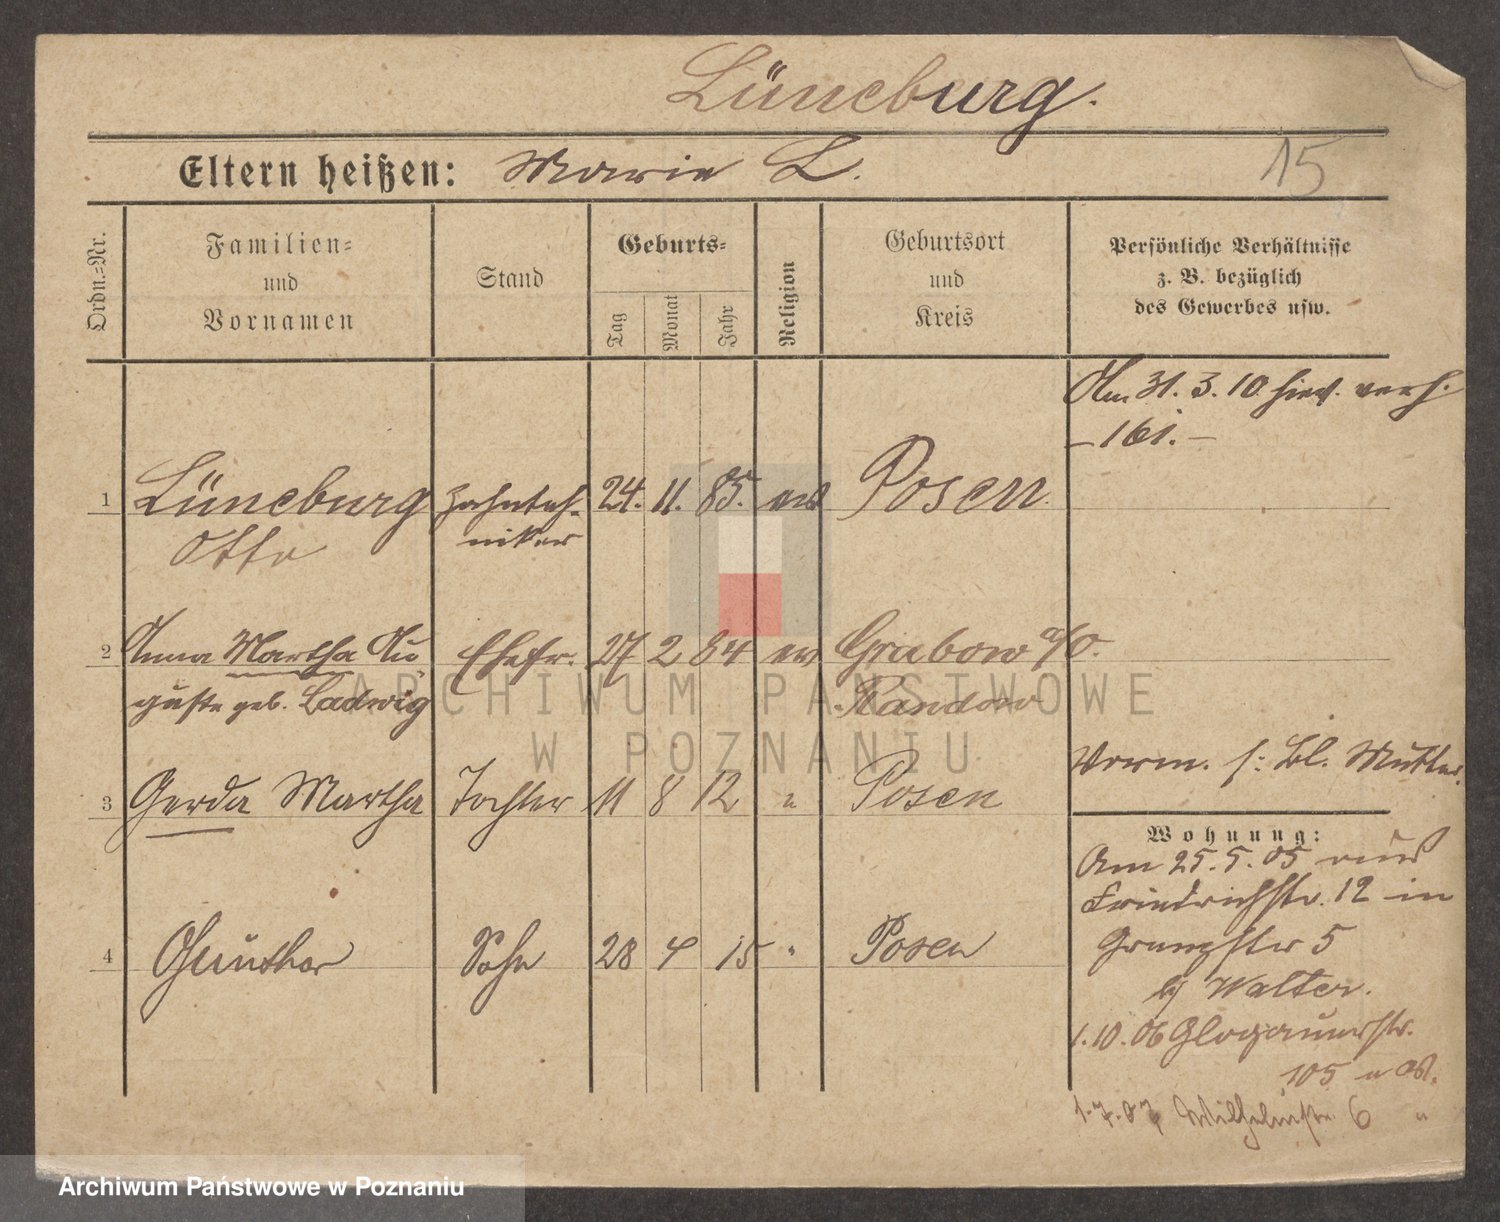 Lüneburg.
Eltern heißen: Marie L.
15
Ordn.=Nr.
Familien=
und
Vornamen
Stand
Geburts=
Tag
Monat
Jahr
Religion
Geburtsort
und
Kreis
Persönliche Verhältnisse
z. B. bezüglich
des Gewerbes usw.
Am 31. 3. 10 hier verh.
- 161. -
1 Lüneburg Zahntech- 24. 11. 85. ev Posen
Otto niker
2 Anna Martha Au Ehefr. 27 2 84 ev Grabow a/O.
guste geb. Ladwig Randow
3 Gerda Martha Tochter 11 8 12 " Posen
Vorm. s: Bl. Mutter.
4 Günther Sohn 28 4 15 " Posen
Wohnung:
Am 25. 5. 05 aus
Friedrichstr. 12 in
5
bei Walter.
1. 10. 06 Glogauerstr.
105
1. 7. 07 Wilhelmstr. 6 "
ARCHIWUM PAŃSTWOWE
W POZNANIU
Archiwum Państwowe w Poznaniu